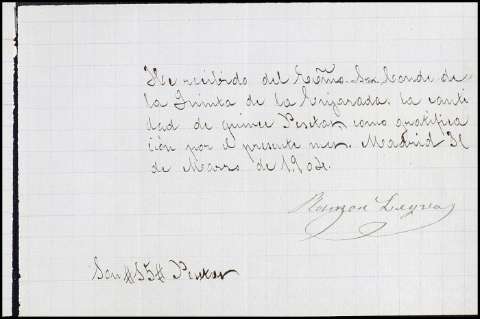 He recibido del Exmo. Sor. Conde de
la Quinta de la Enjarada, la canti
dad de quince Pesetas, como gratifica
ción por el presente mes. Madrid 31
de Marzo de 1904.
Ramon Leyva
Son #15# Pesetas